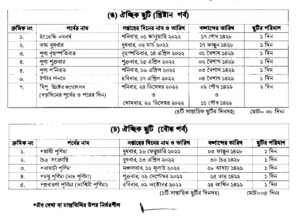 (ঙ) ঐচ্ছিক ছুটি (খ্রিষ্টান পর্ব)
ক্রমিক নং পর্বের নাম সপ্তাহের দিনের নাম ও তারিখ বঙ্গাব্দের তারিখ ছুটির পরিমাণ
১. ইংরেজি নববর্ষ শনিবার, ০১ জানুয়ারি ২০২২ ১৭ পৌষ ১৪২৮ ১ দিন
২. ভস্ম বুধবার বুধবার, ০২ মার্চ ২০২২ ১৭ ফাল্গুন ১৪২৮ ১ দিন
৩. পুণ্য বৃহস্পতিবার বৃহস্পতিবার, ১৪ এপ্রিল ২০২২ ০১ বৈশাখ ১৪২৯ ১ দিন
৪. পুণ্য শুক্রবার শুক্রবার, ১৫ এপ্রিল ২০২২ ০২ বৈশাখ ১৪২৯ ১ দিন
৫. পুণ্য শনিবার শনিবার, ১৬ এপ্রিল ২০২২ ০৩ বৈশাখ ১৪২৯ ১ দিন
৬. ইস্টার সানডে রবিবার, ১৭ এপ্রিল ২০২২ ০৪ বৈশাখ ১৪২৯ ১ দিন
৭. যিশু খ্রিষ্টের জন্মোৎসব শনিবার, ২৪ ডিসেম্বর ২০২২ ০৯ পৌষ ১৪২৯ ২ দিন
(বড়দিনের পূর্বের ও পরের দিন) ও ও
সোমবার, ২৬ ডিসেম্বর ২০২২ ১১ পৌষ ১৪২৯
সাপ্তাহিক ছুটির দিনসহ) মোট= ০৮ দিন
(চ) ঐচ্ছিক ছুটি (বৌদ্ধ পর্ব)
ক্রমিক নং পর্বের নাম সপ্তাহের দিনের নাম ও তারিখ বঙ্গাব্দের তারিখ ছুটির পরিমাণ
১. *মাঘী পূর্ণিমা বুধবার, ১৬ ফেব্রুয়ারি ২০২২ ০৩ ফাল্গুন ১৪২৮ ১ দিন
২. চৈত্র সংক্রান্তি বুধবার, ১৩ এপ্রিল ২০২২ ৩০ চৈত্র ১৪২৮ ১ দিন
৩. *আষাঢ়ী পূর্ণিমা ১২ জুলাই ২০২২ ২৮ আষাঢ় ১৪২৯ ১ দিন
৪. *মধু পূর্ণিমা ২০২২ ২৫ ভাদ্র ১৪২৯ ১ দিন
৫. *প্রবারণা পূর্ণিমা (আশ্বিনী পূর্ণিমা) রবিবার, ০৯ অক্টোবর ২০২২ ২৪ আশ্বিন ১৪২৯ ১ দিন
সাপ্তাহিক ছুটির দিনসহ) মোট=০৫ দিন
*চাঁদ দেখা বা চান্দ্রতিথির উপর নির্ভরশীল